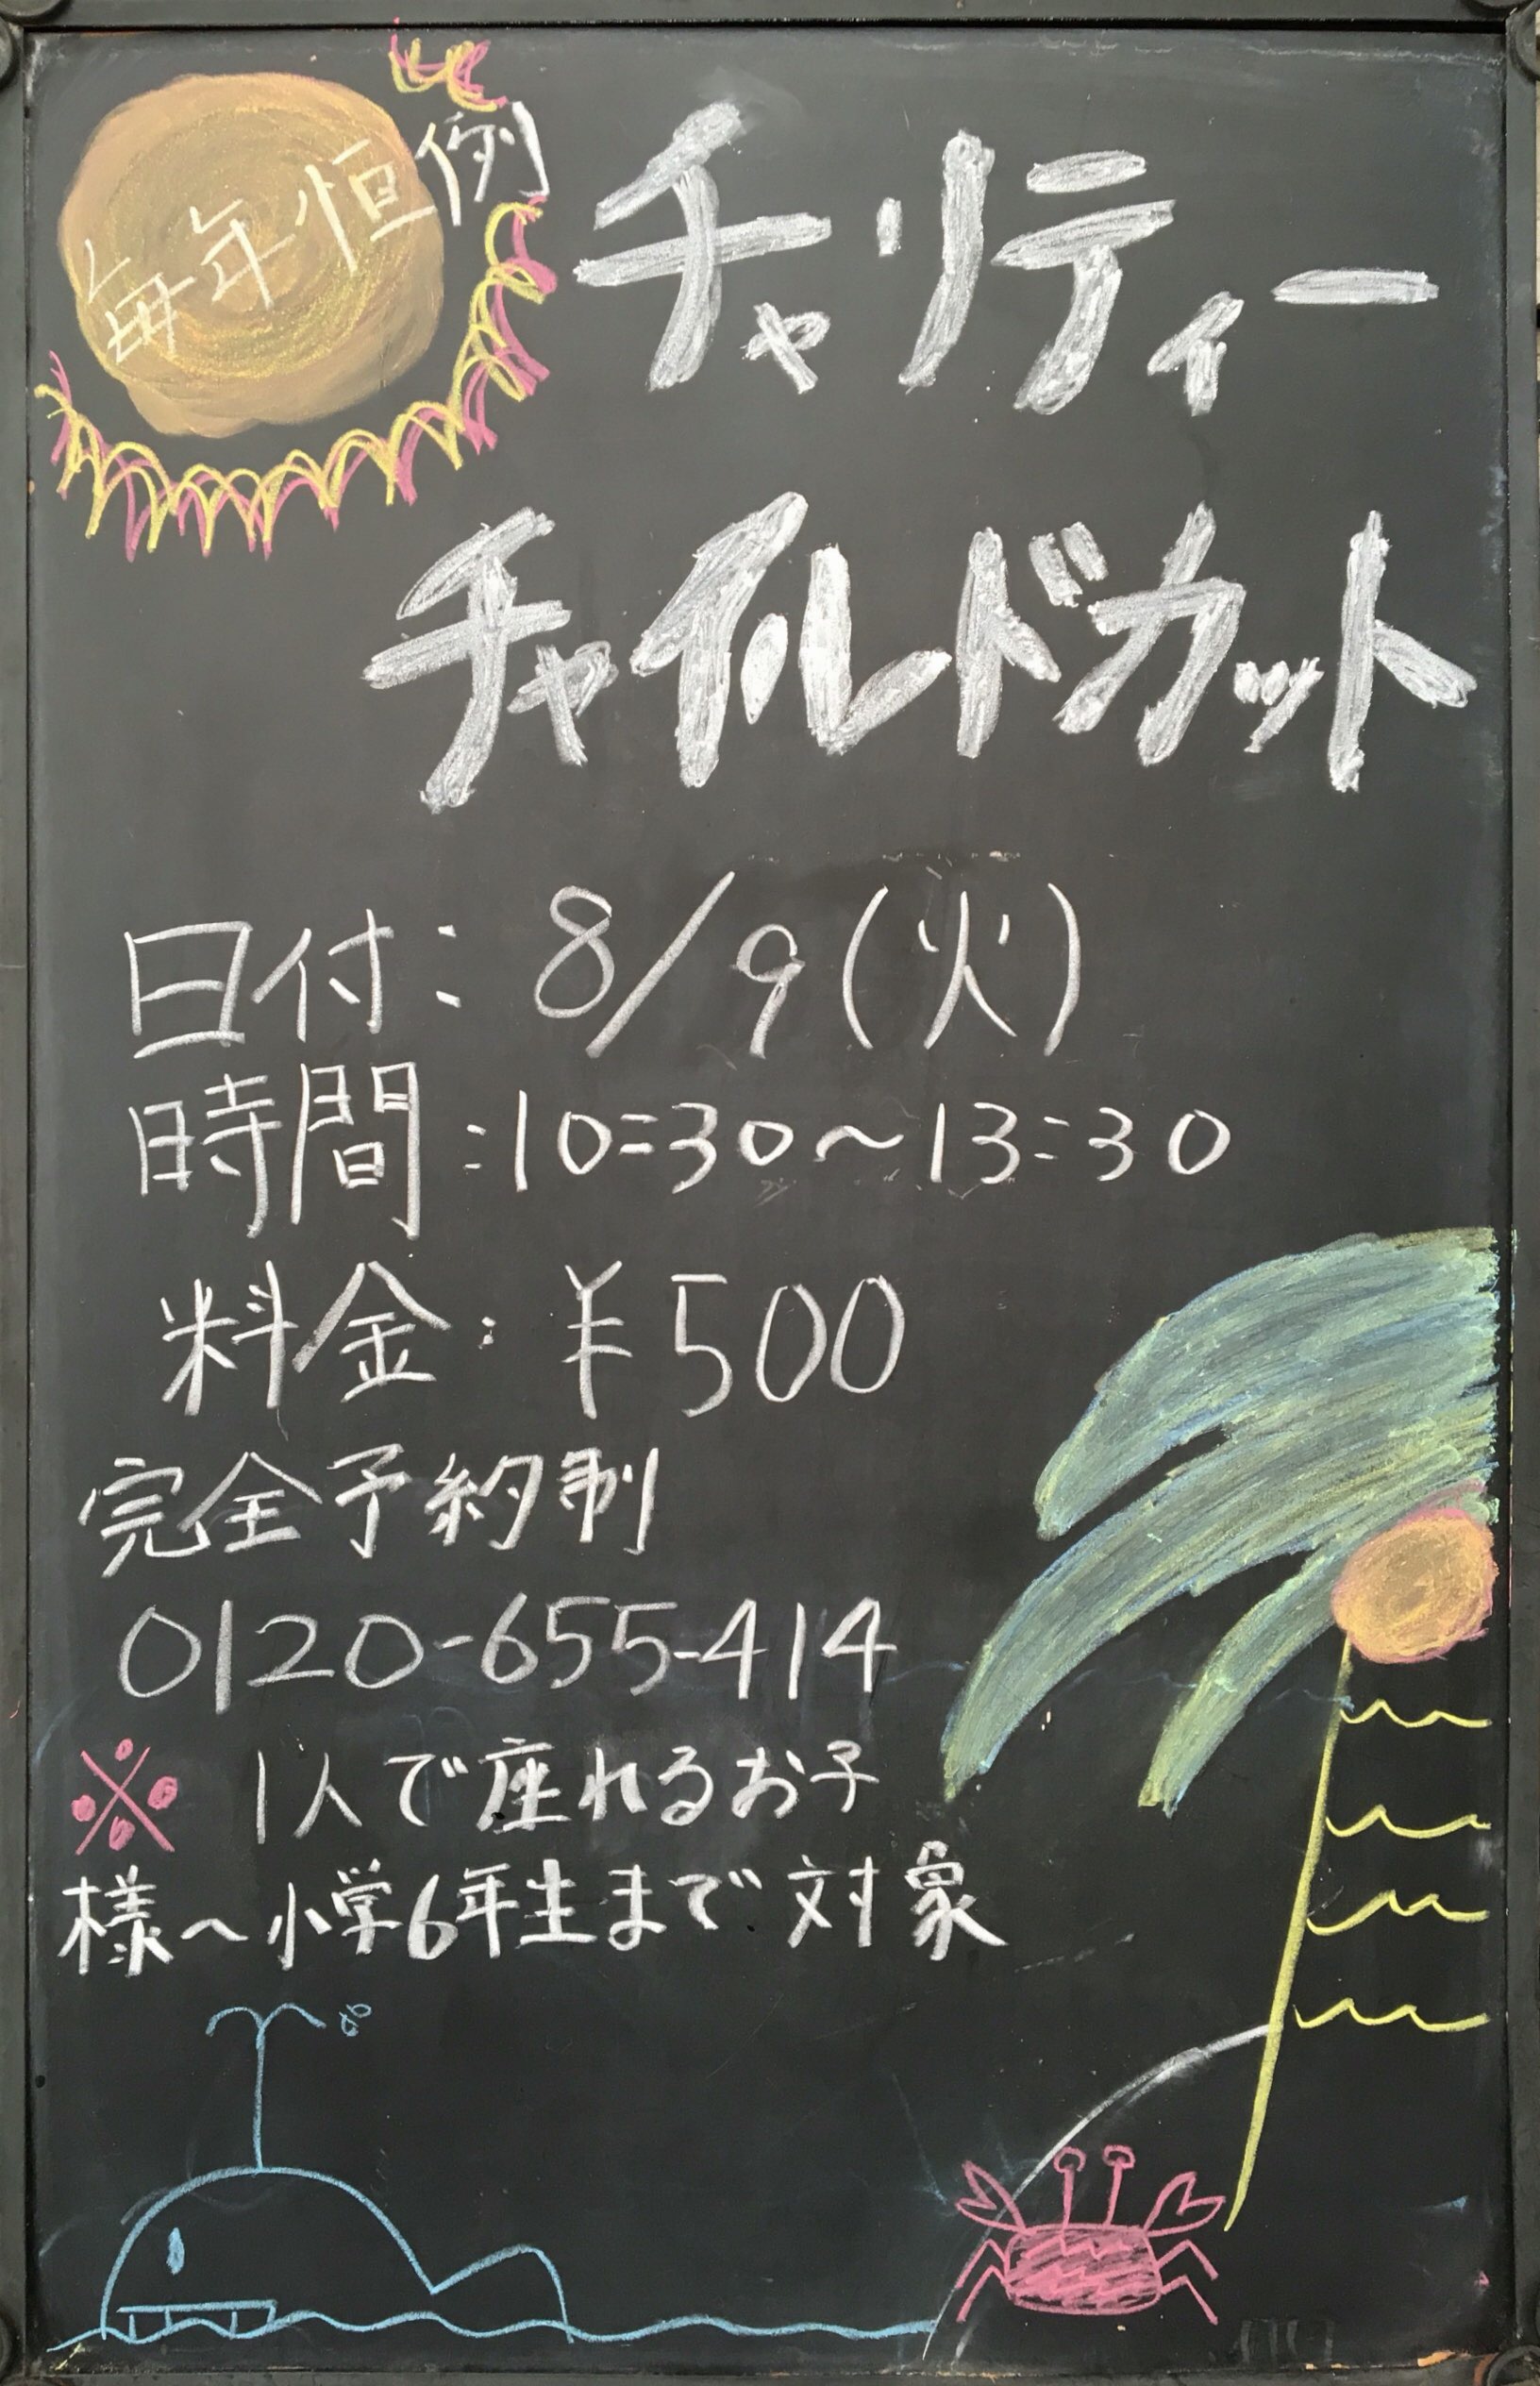 毎年恒例
チャリティー
チャイルドカット
日付：8/9(火)
時間：10:30〜13:30
料金：¥500
完全予約制
0120-655-414
※ 1人で座れるお子
様〜小学6年生まで対象